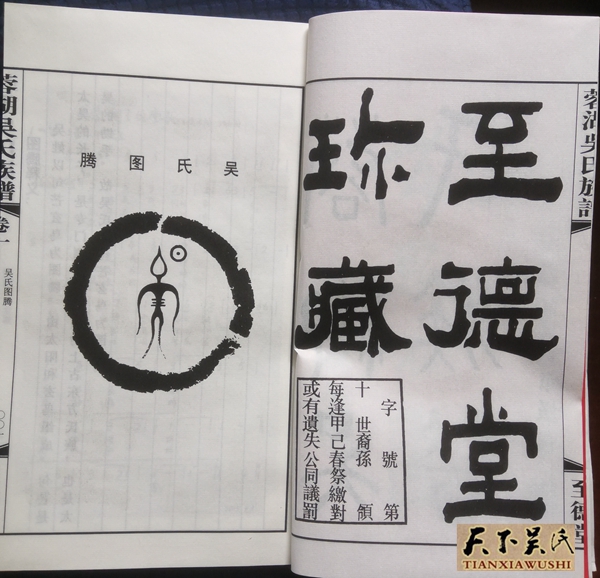 蓉湖吳氏族譜
至德堂
至德堂
珍藏
字號第
十世裔孫領
每逢甲己春祭繳對
或有遺失公同議罰
吴氏图腾
蓉湖吳氏族譜
卷一
吴氏图腾
天下吴氏
TIANXIAWUSHI